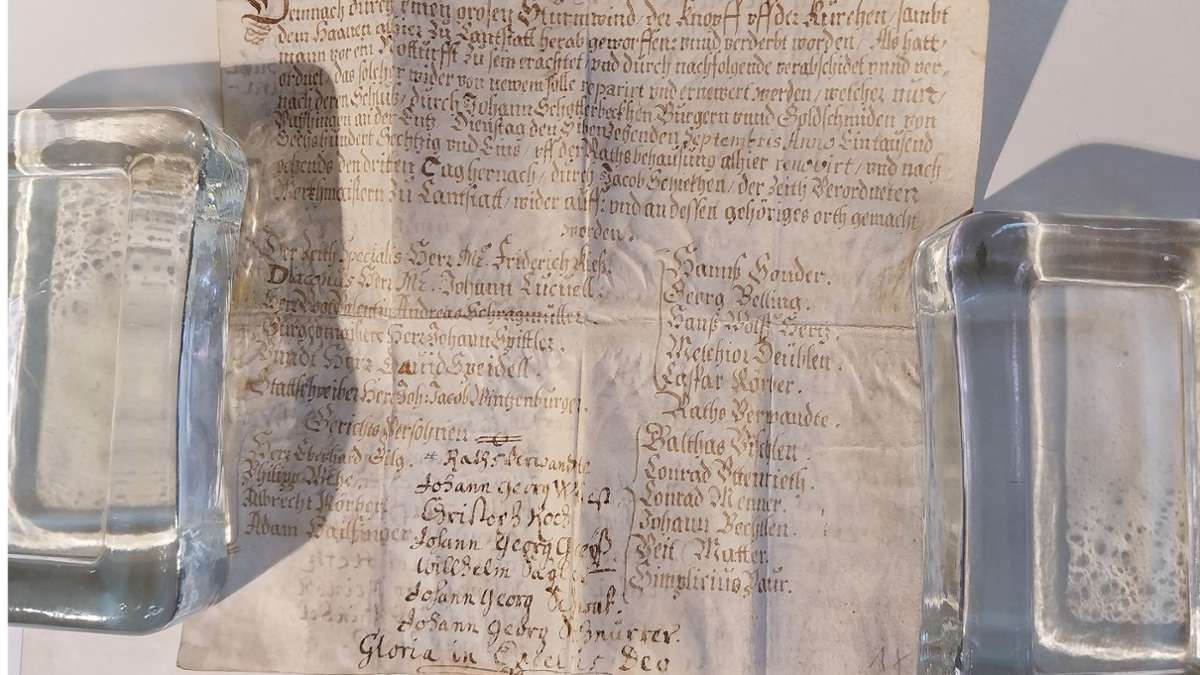 Demnach durch einen grosen Sturmwind, der Knopff vff der Kürchen, sambt
dem Haanen alhier zu Cantstatt herab geworffen: vnnd verderbt worden, Als hatt
mann vor ein Notturfft zu sein erachtet, vnd durch nachfolgende verabschidet vnnd ver-
ordnet, das solcher wider von newem solle reparirt vnd ernewert werden, welcher nun,
nach deren Schluß, durch Johann Schotterbeckhen Burgern vnnd Goldschmiden von
Vayhingen an der Entz, Dienstag den Sibenzehenden Septembris Anno Eintausend
Sechshundert Sechtzig vnd Eins, vff der Rathsbehausung alhier renovirt, vnd nach-
gehends den dritten Tag hernach, durch Jacob, der Zeith Verordneten
Werckhmaistern zu Cantstatt, wider auff: vnd an dessen gehöriges orth gemacht
worden.
Der Zeith Specialis Herr Mr. Friderich Rieß.
Diaconus Herr Mr. Johann
Herr Andreas Schragmüller
Burgermaistere Herr Johann Spittler.
Herr David Speidell.
Stattschreiber Herr Joh: Jacob Wintzenburger.
Gerichts Persohnen
Herr Eberhard Gilg.
Philipp
Albrecht Körber
Adam
Hannß Sonder.
Georg Belling.
Hanß Wolff Hertz
Melchior Deüblen.
Caspar Körber.
Raths Verwandte.
Balthas
Conrad Vttenrieth.
Conrad Menner.
Johann Bechtlen.
Veit Mutter.
Simplicius Baur.
Raths Verwandte
Johann Georg
Christoph Koch
Johann Georg
Willhelm
Johann Georg
Johann Georg Schnürrer.
Gloria in Excelsis Deo
18